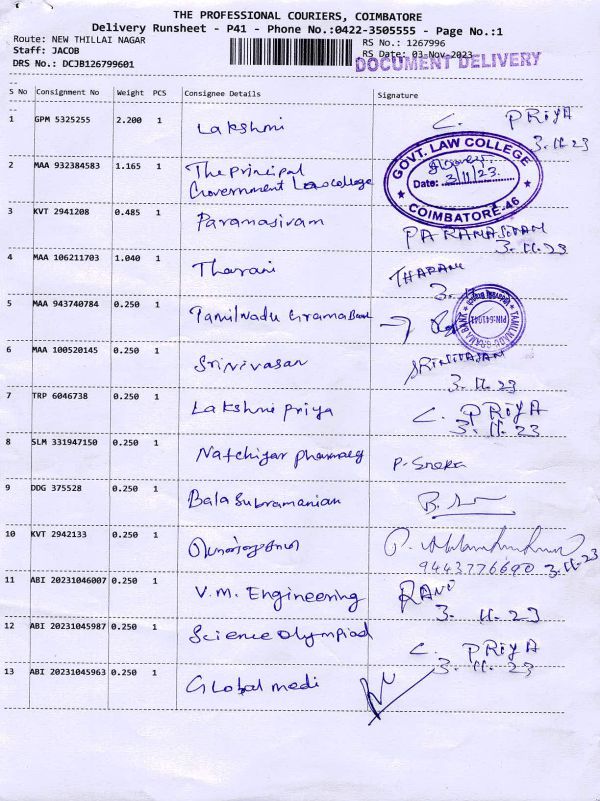 THE PROFESSIONAL COURIERS, COIMBATORE
Delivery Runsheet - P41 - Phone No.:0422-3505555 - Page No.:1
Route: NEW THILLAI NAGAR
RS No.: 1267996
Staff: JACOB
RS Date: 03-Nov-2023
DRS No.: DCJB126799601
DOCUMENT DELIVERY
S No Consignment No Weight PCS Consignee Details Signature
1 GPM 5325255 2.200 1 Lakshmi C. PRIYA
3.11.23
2 MAA 932384583 1.165 1 The principal
Government Law college
GOVT. LAW COLLEGE
Date: 3/11/23.
COIMBATORE-46
3 KVT 2941208 0.485 1 Paramasivam PARAMASIVAM
3.11.23
4 MAA 106211703 1.040 1 Tharani THARANI
5 MAA 943740784 0.250 1 Tamil Nadu Grama Bank
TAMILNADU GRAMA BANK
PIN:641041
6 MAA 100520145 0.250 1 Srinivasan SRINIVASAN
3.11.23
7 TRP 6046738 0.250 1 Lakshmi priya C. PRIYA
3.11.23
8 SLM 331947150 0.250 1 Natchiyar pharmacy P. Sneka
9 DDG 375528 0.250 1 Bala Subramanian
10 KVT 2942133 0.250 1
9443776690 3.11.23
11 ABI 20231046007 0.250 1 V.M. Engineering RANU
3.11.23
12 ABI 20231045987 0.250 1 Science olympiad C. PRIYA
3.11.23
13 ABI 20231045963 0.250 1 Global medi